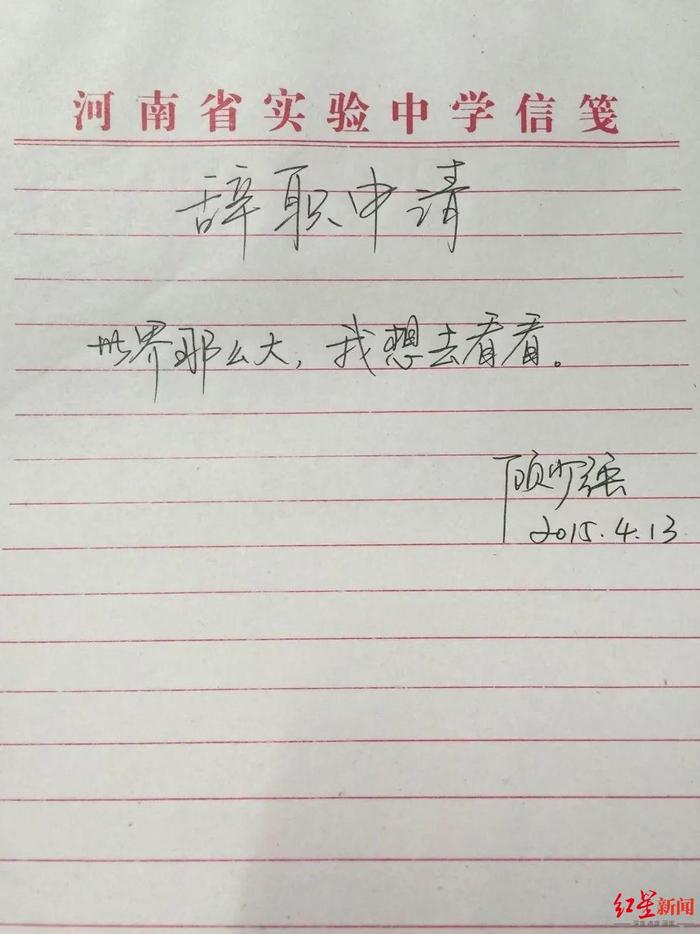 河南省实验中学信笺
辞职申请
世界那么大，我想去看看。
顾少强
2015.4.13
红星新闻